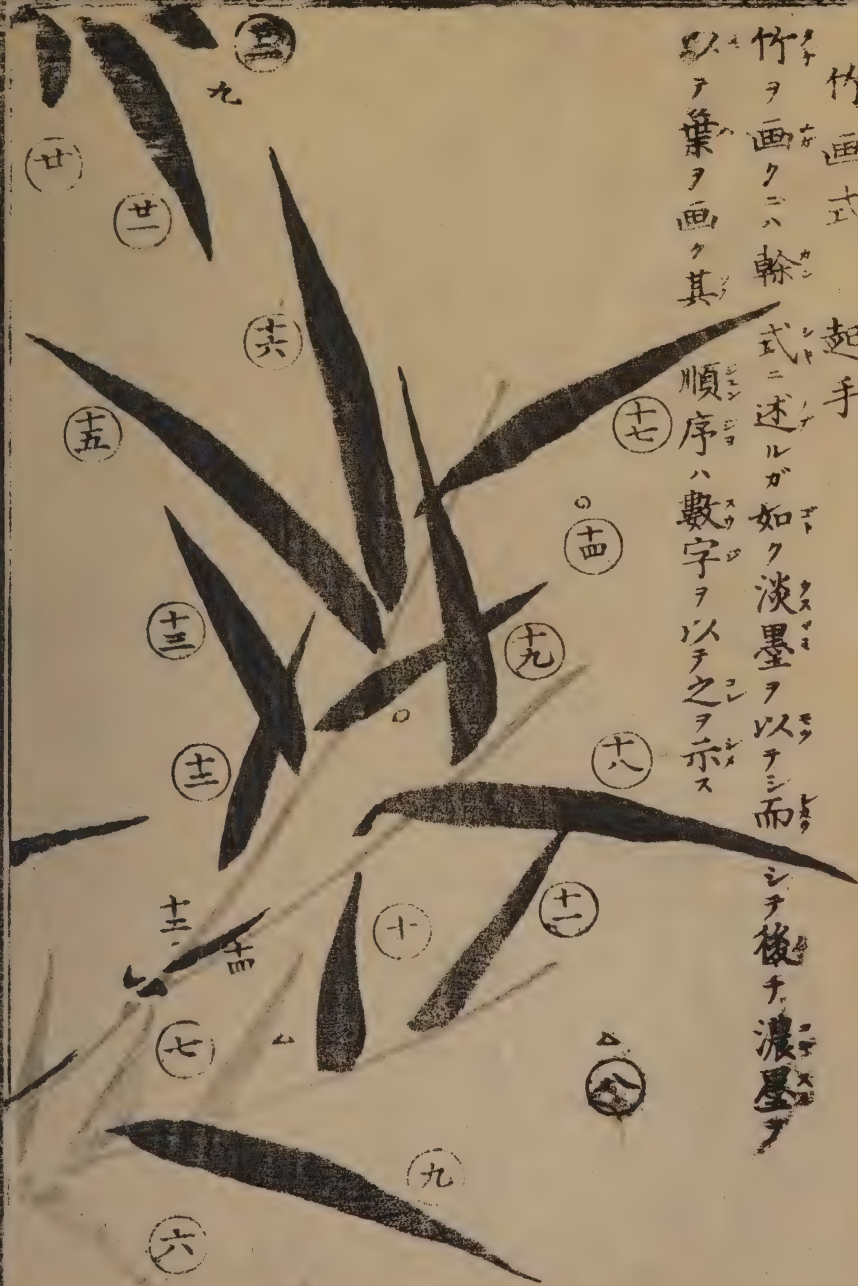 竹画式 起手
竹ヲ画クニハ幹式ニ述ルガ如ク淡墨ヲ以テシ而シテ後チ濃墨ヲ
以テ葉ヲ画ク其順序ハ數字ヲ以テ之ヲ示ス
九
廿
廿一
十六
十七
十五
十四
十三
十九
十二
十八
十二
十四
十
十一
七
八
九
六